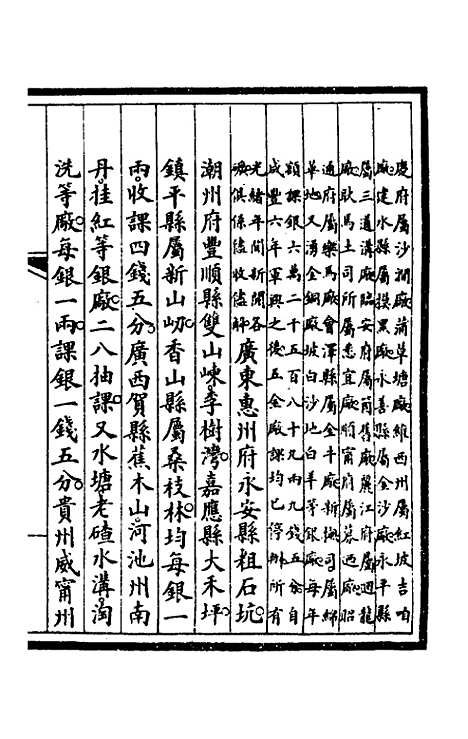 慶府屬沙澗廠蒲草塘廠維西州屬紅坡吉咱
廠建水縣屬摸黑廠永善縣屬金沙廠永平縣
屬三道溝廠臨安府屬箇舊廠麗江府屬迴龍
廠耿馬土司所屬悉宜廠順甯府屬募迺廠昭
通府屬樂馬廠會澤縣屬金牛廠新撫司屬綿
革地又湧金銅廠坡白沙地白羊等銀廠每年
額課銀六萬二千五百八十九兩九錢五分自
咸豐六年軍興之後五金廠課均已停辦所有
光緒年間新開各
廠俱係儘收儘解廣東惠州府永安縣粗石坑
潮州府豐順縣雙山崠李樹灣嘉應縣大禾坪
鎮平縣屬新山岃香山縣屬桑枝林均每銀一
兩收課四錢五分廣西賀縣蕉木山河池州南
丹挂紅等銀廠二八抽課又水塘老碴水溝淘
洗等廠每銀一兩課銀一錢五分貴州威甯州